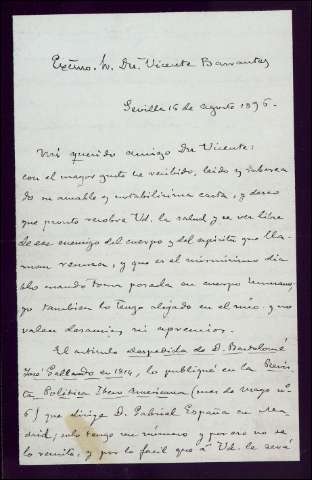 Excmo. Sr. Dn. Vicente Barrantes
Sevilla 16 de agosto 1896.
Mi querido amigo Dn. Vicente:
con el mayor gusto he recibido, leido y saborea
do su amable y notabilísima carta, y deseo
que pronto recobre Vd. la salud y se vea libre
de ese enemigo del cuerpo y del espíritu que lla
man reuma, y que es el mismísimo dia
blo cuando toma posada en cuerpo humano.
yo tambien lo tengo alojado en el mío y no
valen desaucios, ni apremios.
El artículo despedida de D. Bartolomé
José Gallardo en 1814, lo publiqué en la Revis
ta Política Ibero Americana (mes de mayo nº
6) que dirige D. Gabriel España en Ma
drid; solo tengo un número y por eso no se
lo remito, y por lo facil que á Vd. le será